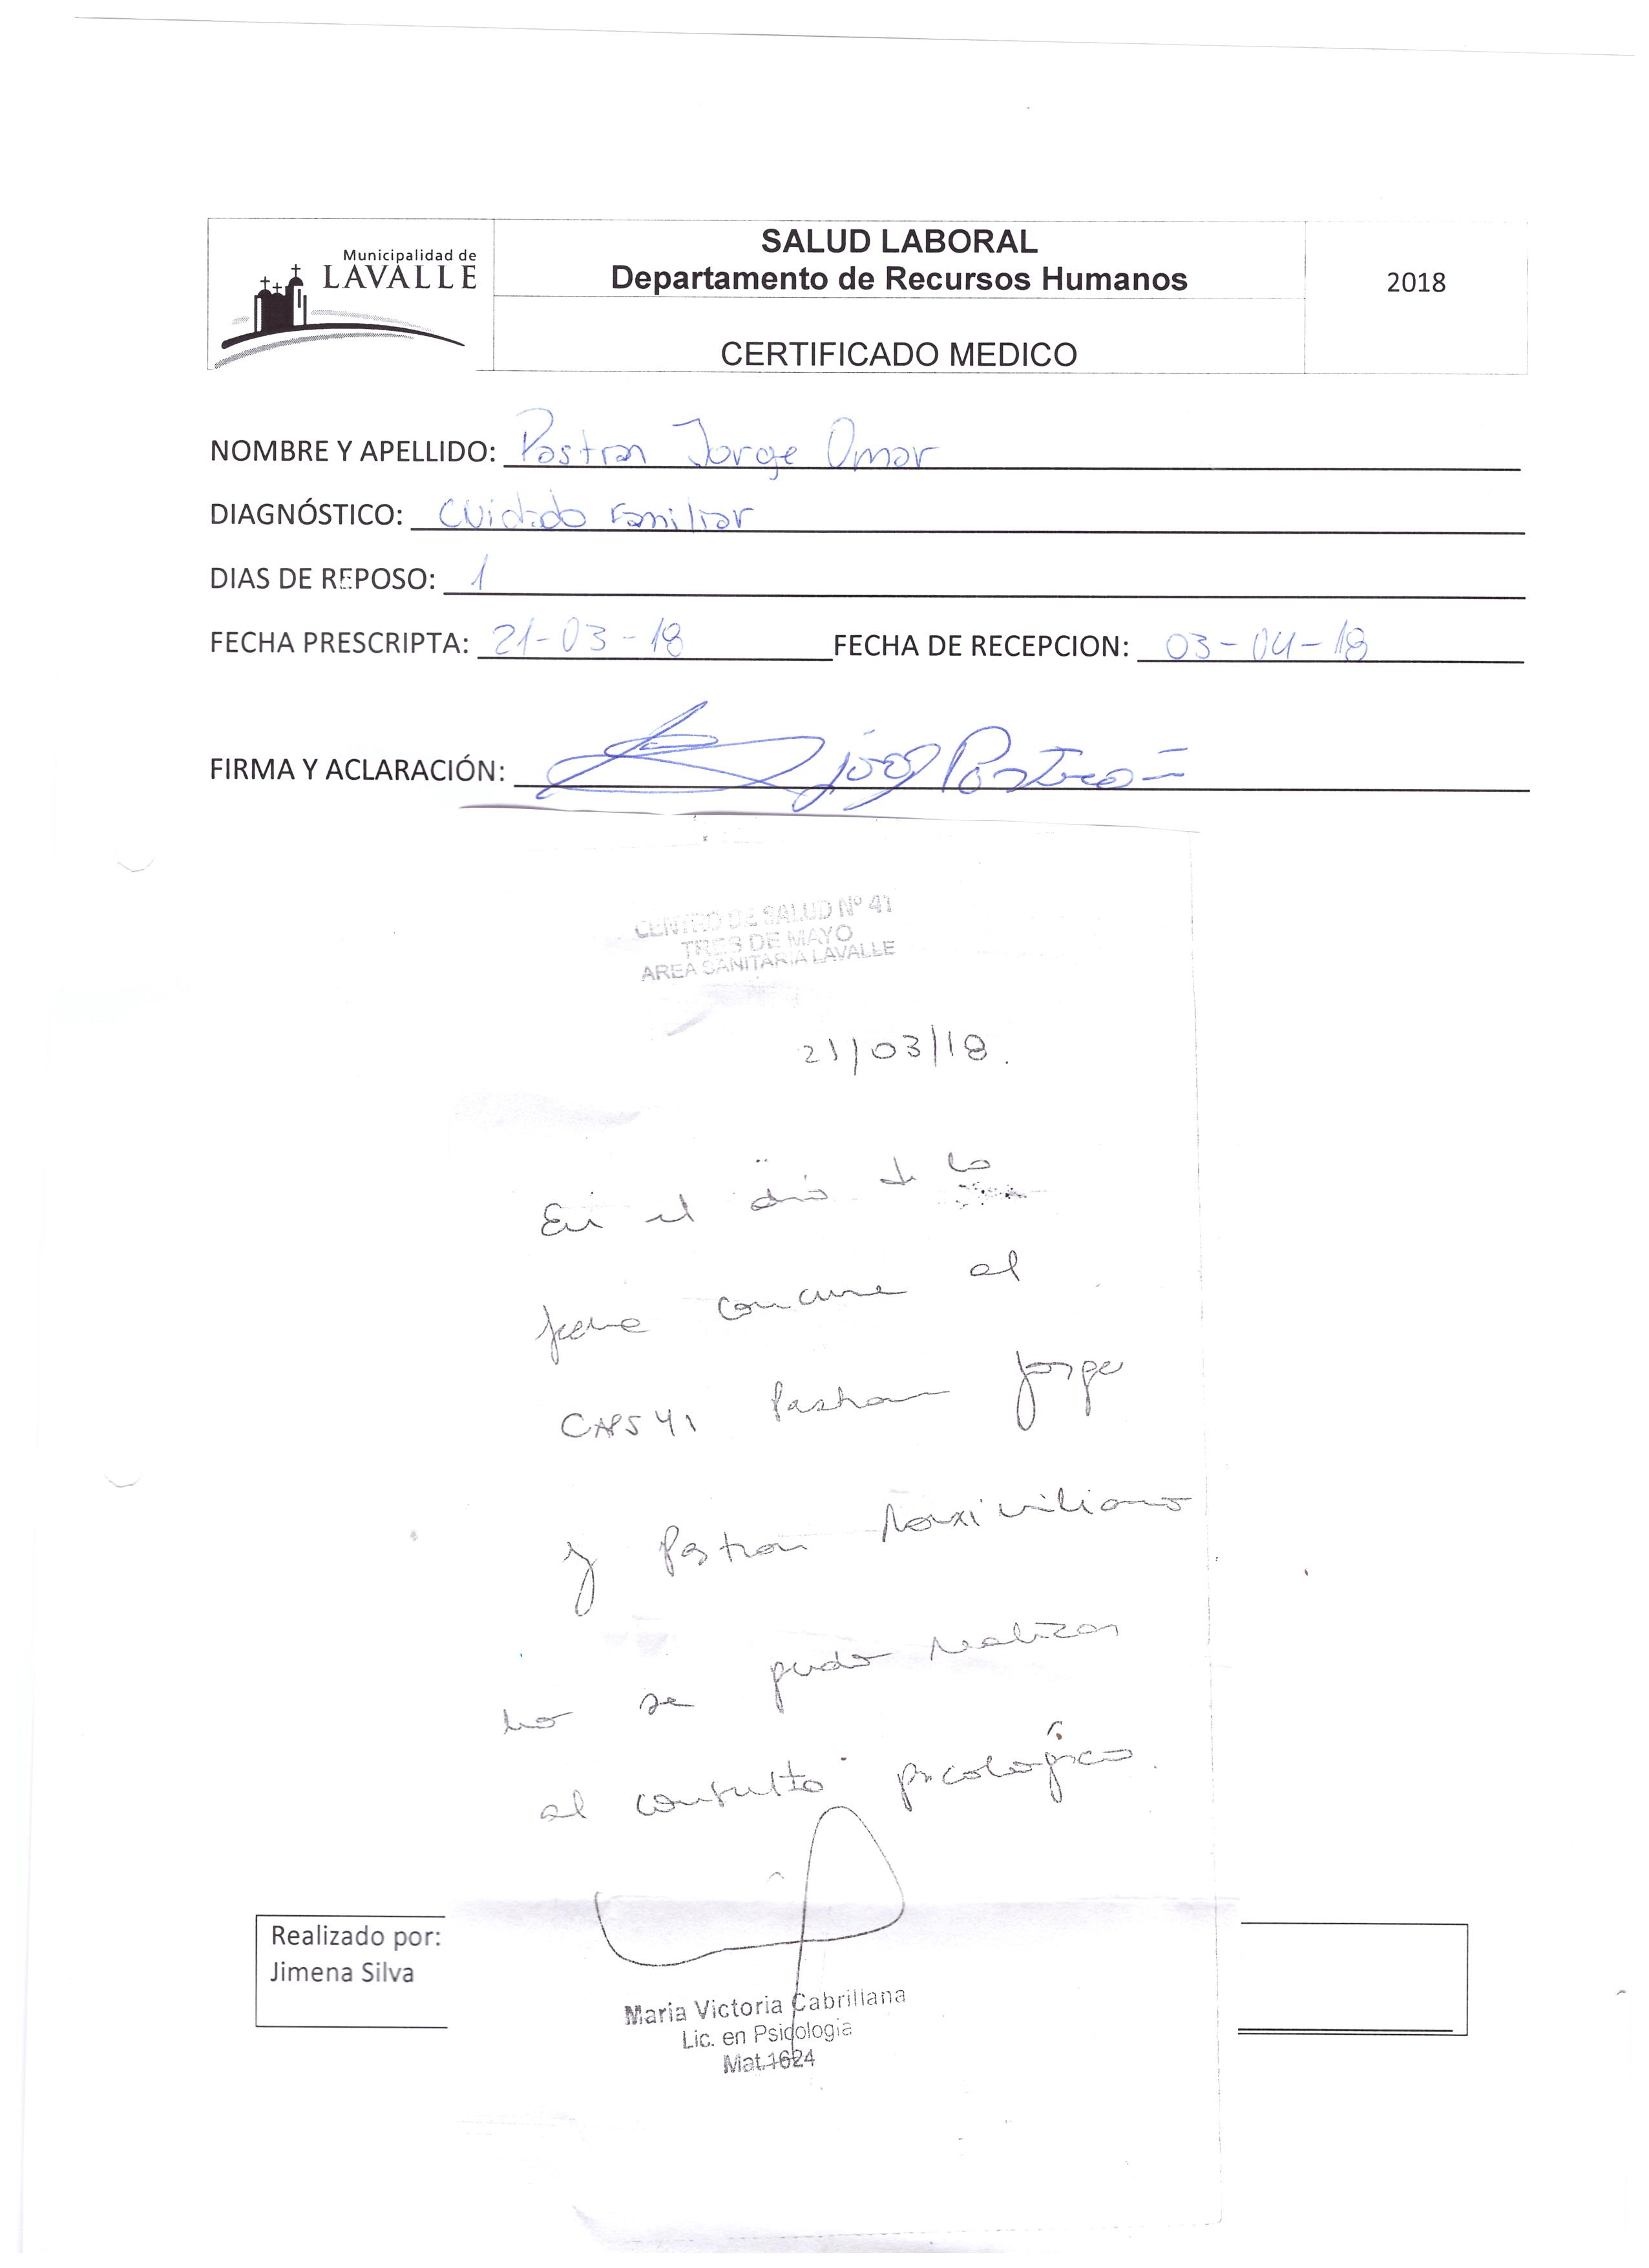 Municipalidad de
LAVALLE
SALUD LABORAL
Departamento de Recursos Humanos
CERTIFICADO MEDICO
2018
NOMBRE Y APELLIDO: Pastran Jorge Omar
DIAGNÓSTICO: Cuidado Familiar
DIAS DE REPOSO: 1
FECHA PRESCRIPTA: 21-03-18 FECHA DE RECEPCION: 03-04-18
FIRMA Y ACLARACIÓN: Pastran
CENTRO DE SALUD Nº 41
TRES DE MAYO
AREA SANITARIA LAVALLE
21/03/18.
En el dia de la
fecha concurre al
CAPS 41 Pastran Jorge
y Pastran Maximiliano
no se pudo realizar
el consulto psicológico.
Realizado por:
Jimena Silva
Maria Victoria Cabrillana
Lic. en Psicologia
Mat.1624